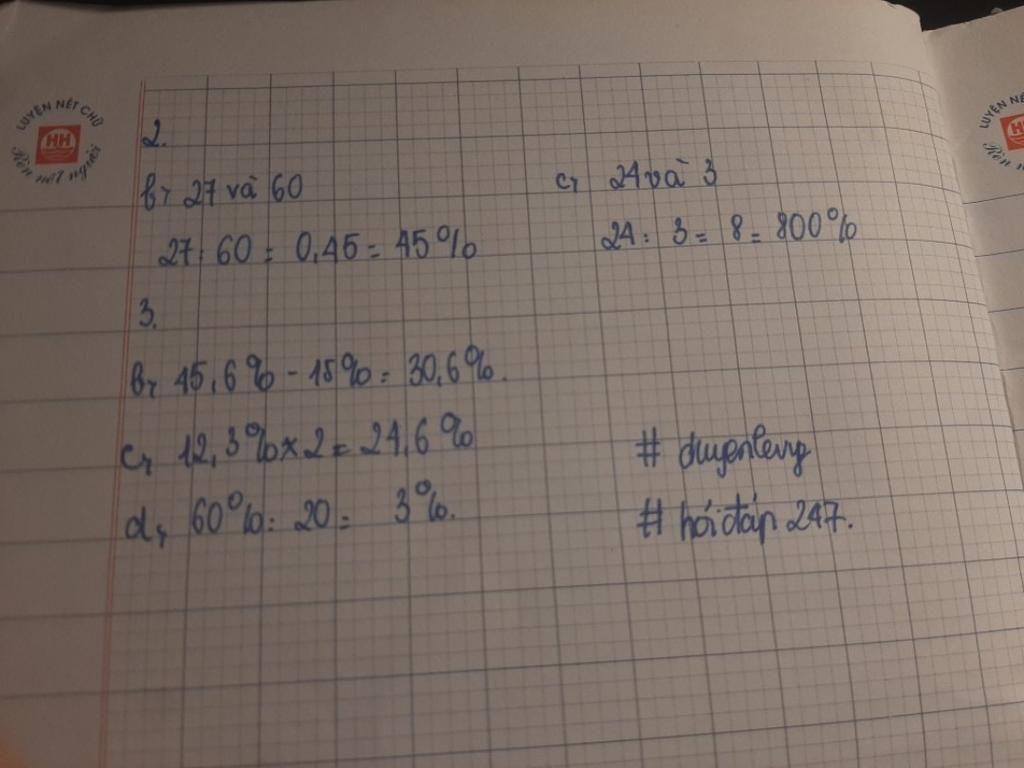 LUYỆN NÉT CHỮ
HH
Rèn nết người
LUYỆN NÉ
Rèn n
2.
b, 27 và 60
c, 24 và 3
27 : 60 = 0,45 = 45%
24 : 3 = 8 = 800%
3.
b, 45,6% - 15% = 30,6%.
c, 12,3% x 2 = 24,6%
d, 60% : 20 = 3%.
# hỏi đáp 247.